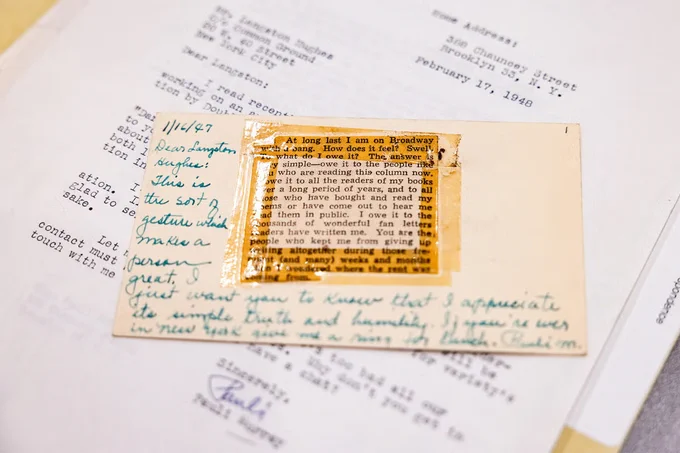 Home Address:
388 Chauncey Street
Brooklyn 33, N. Y.
February 17, 1948
Mr. Langston Hughes
c/o Common Ground
20 W. 40 Street
New York City
Dear Langston:
I read recent
working on an a
tion by Dou
"Da
to y
about
both
tion in
ation. I
glad to se
sake.
Let
contact must
touch with me
1
1/16/47
Dear Langston
Hughes:
This is
the sort of
gesture which
makes a
person
great. I
just want you to know that I appreciate
its simple truth and humility. If you're ever
in New York give me a ring for lunch. Pauli M.
At long last I am on Broadway
with a bang. How does it feel? Swell
what do I owe it? The answer is
very simple—owe it to the people like
you who are reading this column now,
owe it to all the readers of my books
over a long period of years, and to all
those who have bought and read my
poems or have come out to hear me
read them in public. I owe it to the
thousands of wonderful fan letters
readers have written me. You are the
people who kept me from giving up
writing altogether during those
(and many) weeks and months
I wondered where the rent was
coming from.
will be
for variety's
too bad all our
Why don't you get in
have a chat?
Sincerely,
Pauli
Pauli Murray